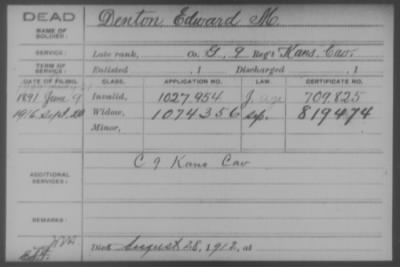 DEAD
NAME OF SOLDIER: Denton Edward M.
SERVICE: Late rank, Co. G, 9 Reg't Kans. Cav.
TERM OF SERVICE: Enlisted , 1 Discharged , 1
DATE OF FILING. CLASS. APPLICATION NO. LAW. CERTIFICATE NO.
1891 June 9 Invalid, 1027.954 J 709.825
1916 Sept. 20 Widow, 1074356 Sep. 819474
Minor,
ADDITIONAL SERVICES: C 9 Kans Cav
REMARKS:
Died August 28, 1912, at